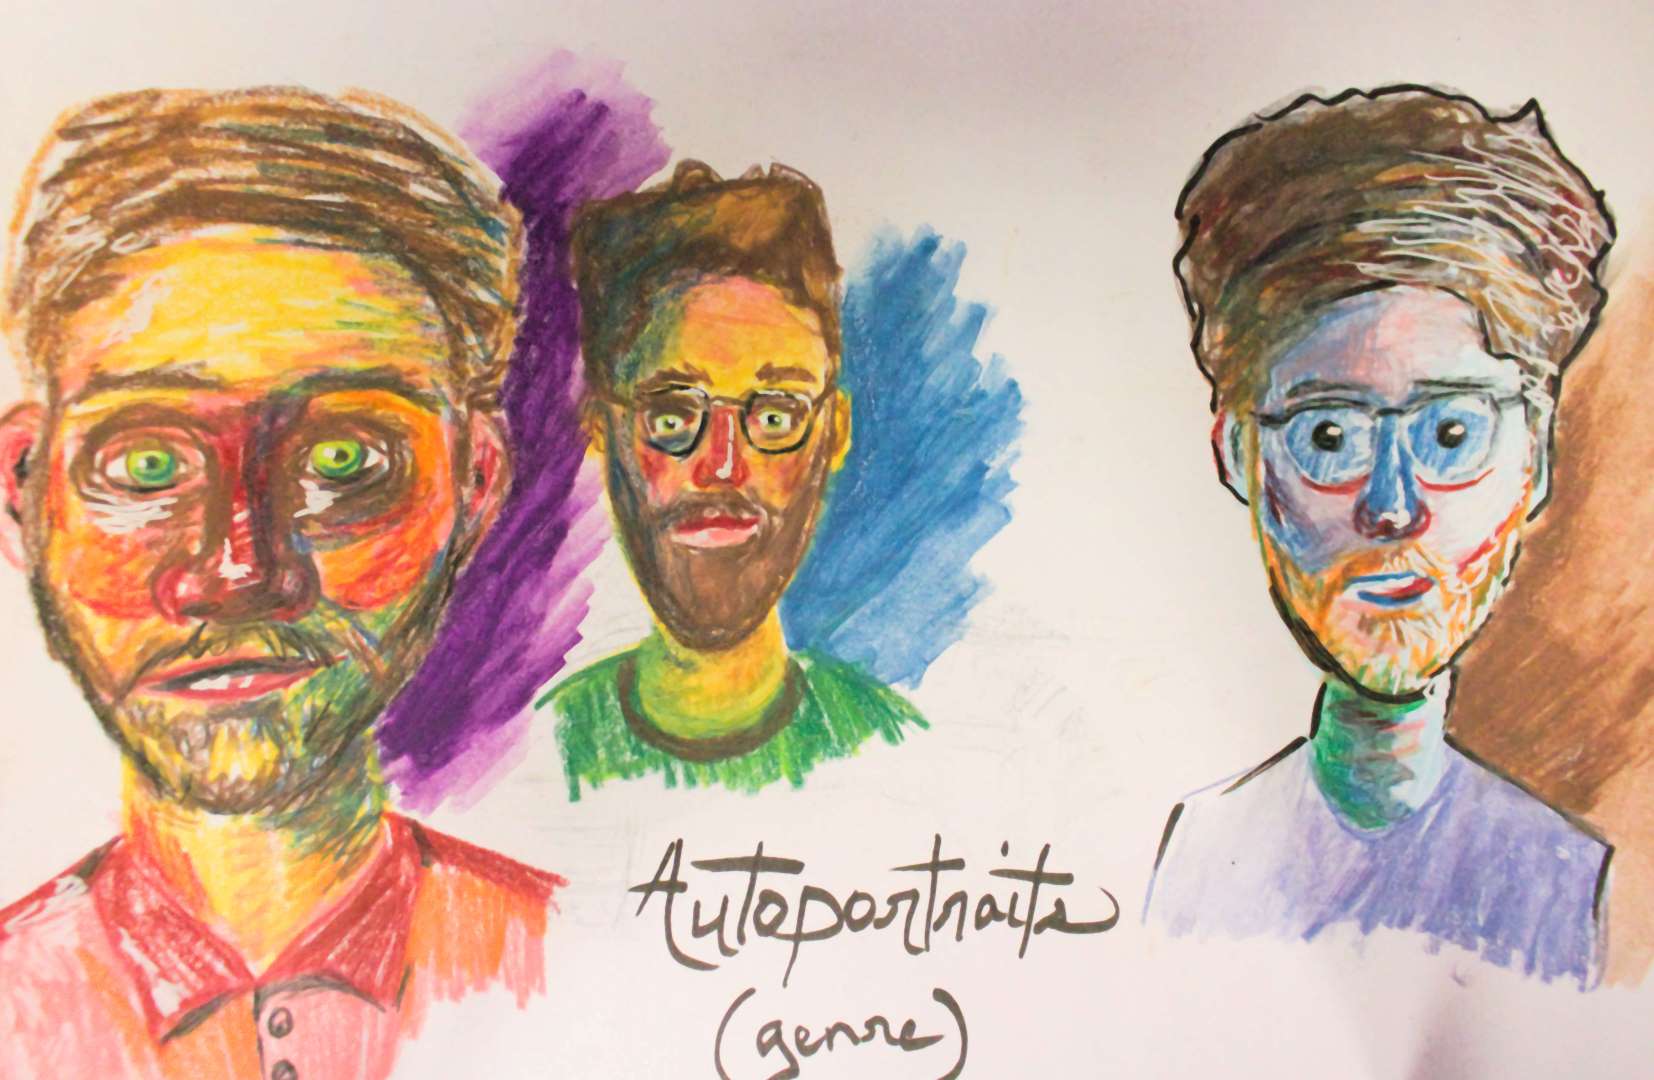 Autoportraits
(genre)